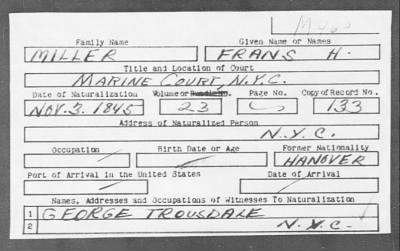 M460
Family Name Given Name or Names
MILLER FRANS H.
Title and Location of Court
MARINE COURT, N.Y.C.
Date of Naturalization Volume or Bundle No. Page No. Copy of Record No.
NOV. 3. 1845 23 133
Address of Naturalized Person
N.Y.C.
Occupation Birth Date or Age Former Nationality
HANOVER
Port of Arrival in the United States Date of Arrival
Names, Addresses and Occupations of Witnesses To Naturalization
1 GEORGE TROUSDALE
2 N.Y.C.